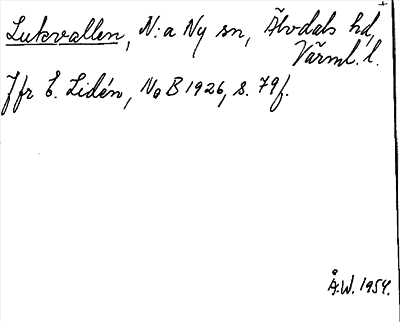 Lukvallen, N:a Ny sn, Älvdals hd,
Värml. l.
Jfr E. Lidén, NoB 1926, s. 79f.
Å.W. 1954.